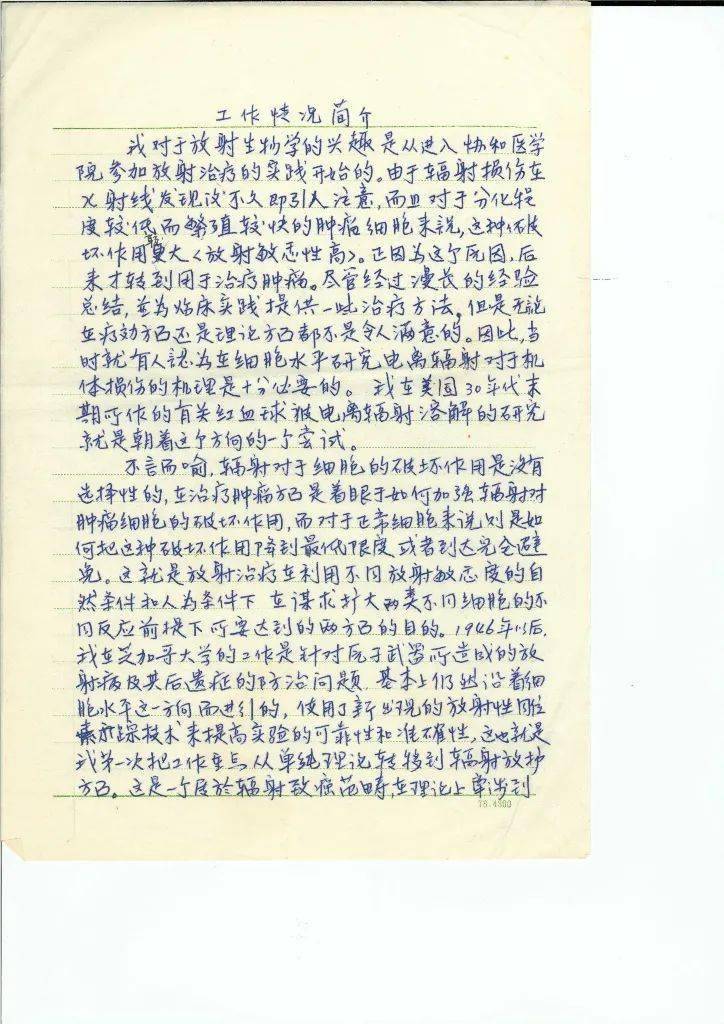 工作情况简介
我对于放射生物学的兴趣是从进入协和医学
院参加放射治疗的实践开始的。由于辐射损伤在
X射线发现后不久即引人注意，而且对于分化程
度较低而繁殖较快的肿瘤细胞来說，这种破
坏作用就更大〈放射敏感性高〉。正因为这个原因，后
来才转到用于治疗肿瘤。尽管经过漫长的经验
总结，並为临床实践提供一些治疗方法。但是无论
在疗効方面还是理论方面都不是令人满意的。因此，当
时就有人認为在细胞水平研究电离辐射对于机
体损伤的机理是十分必要的。我在美国30年代末
期所作的有关红血球被电离辐射溶解的研究
就是朝着这个方向的一个尝试。
不言而喻，辐射对于细胞的破坏作用是没有
选择性的，在治疗肿瘤方面是着眼于如何加强辐射对
肿瘤细胞的破坏作用，而对于正常细胞来说则是如
何把这种破坏作用降到最低限度或者到达完全避
免。这就是放射治疗在利用不同放射敏感度的自
然条件和人为条件下在谋求扩大两类不同细胞的不
同反应前提下所要达到的两方面的目的。1946年以后，
我在芝加哥大学的工作是针对原子武器所造成的放
射病及其后遗症的防治问题，基本上仍然沿着细
胞水平这一方向而进行的，使用了新出现的放射性同位
素示踪技术来提高实验的可靠性和准確性，这也就是
我第一次把工作重点从单纯理论转移到辐射放护
方面。这是一个属於辐射致癌范畴，在理论上牵涉到
78.4300